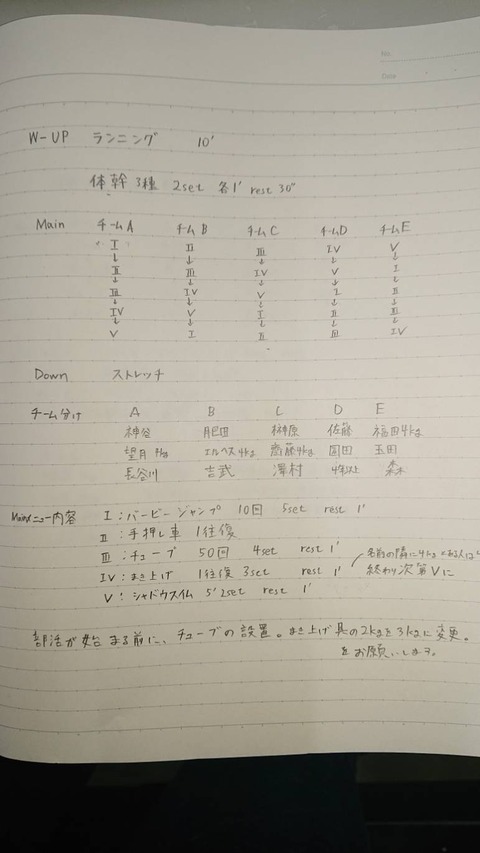 No.
Date
W-UP ランニング 10'
体幹3種 2set 各1' rest 30"
Main チームA チームB チームC チームD チームE
I II III IV V
↓ ↓ ↓ ↓ ↓
II III IV V I
↓ ↓ ↓ ↓ ↓
III IV V I II
↓ ↓ ↓ ↓ ↓
IV V I II III
↓ ↓ ↓ ↓ ↓
V I II III IV
Down ストレッチ
チーム分け A B C D E
神谷 肥田 榊原 佐藤 福田4kg
望月 エルヘス4kg 齋藤4kg 園田 玉田
長谷川 吉武 澤村 4年以上 森
Mainメニュー内容 I:バービージャンプ 10回 5set rest 1'
II:手押し車 1往復
III:チューブ 50回 4set rest 1'
IV:まき上げ 1往復 3set rest 1' 名前の隣に4kgとある人は
終わり次第Vに
V:シャドウスイム 5' 2set rest 1'
部活が始まる前に、チューブの設置。まき上げ具の2kgを3kgに変更。
をお願いします。